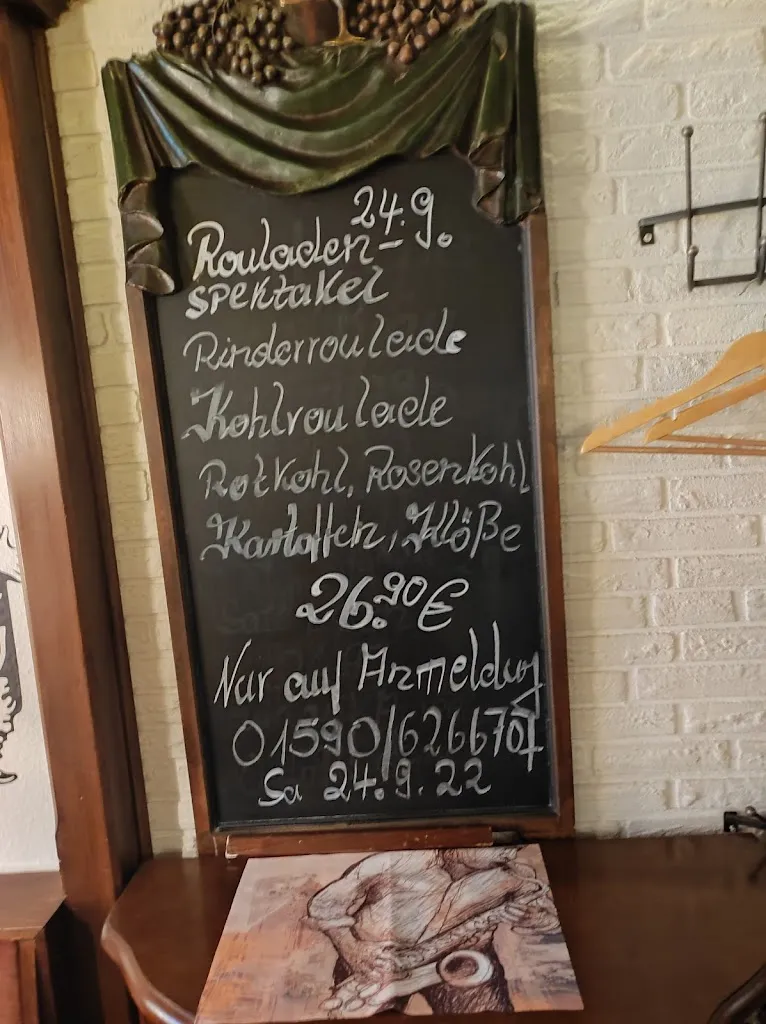 24.9.
Rouladen-
spektakel
Rinderroulade
Kohlroulade
Rotkohl, Rosenkohl
Kartoffeln, Klöße
26.90€
Nur auf Anmeldung
01590/6266707
Sa 24.9.22